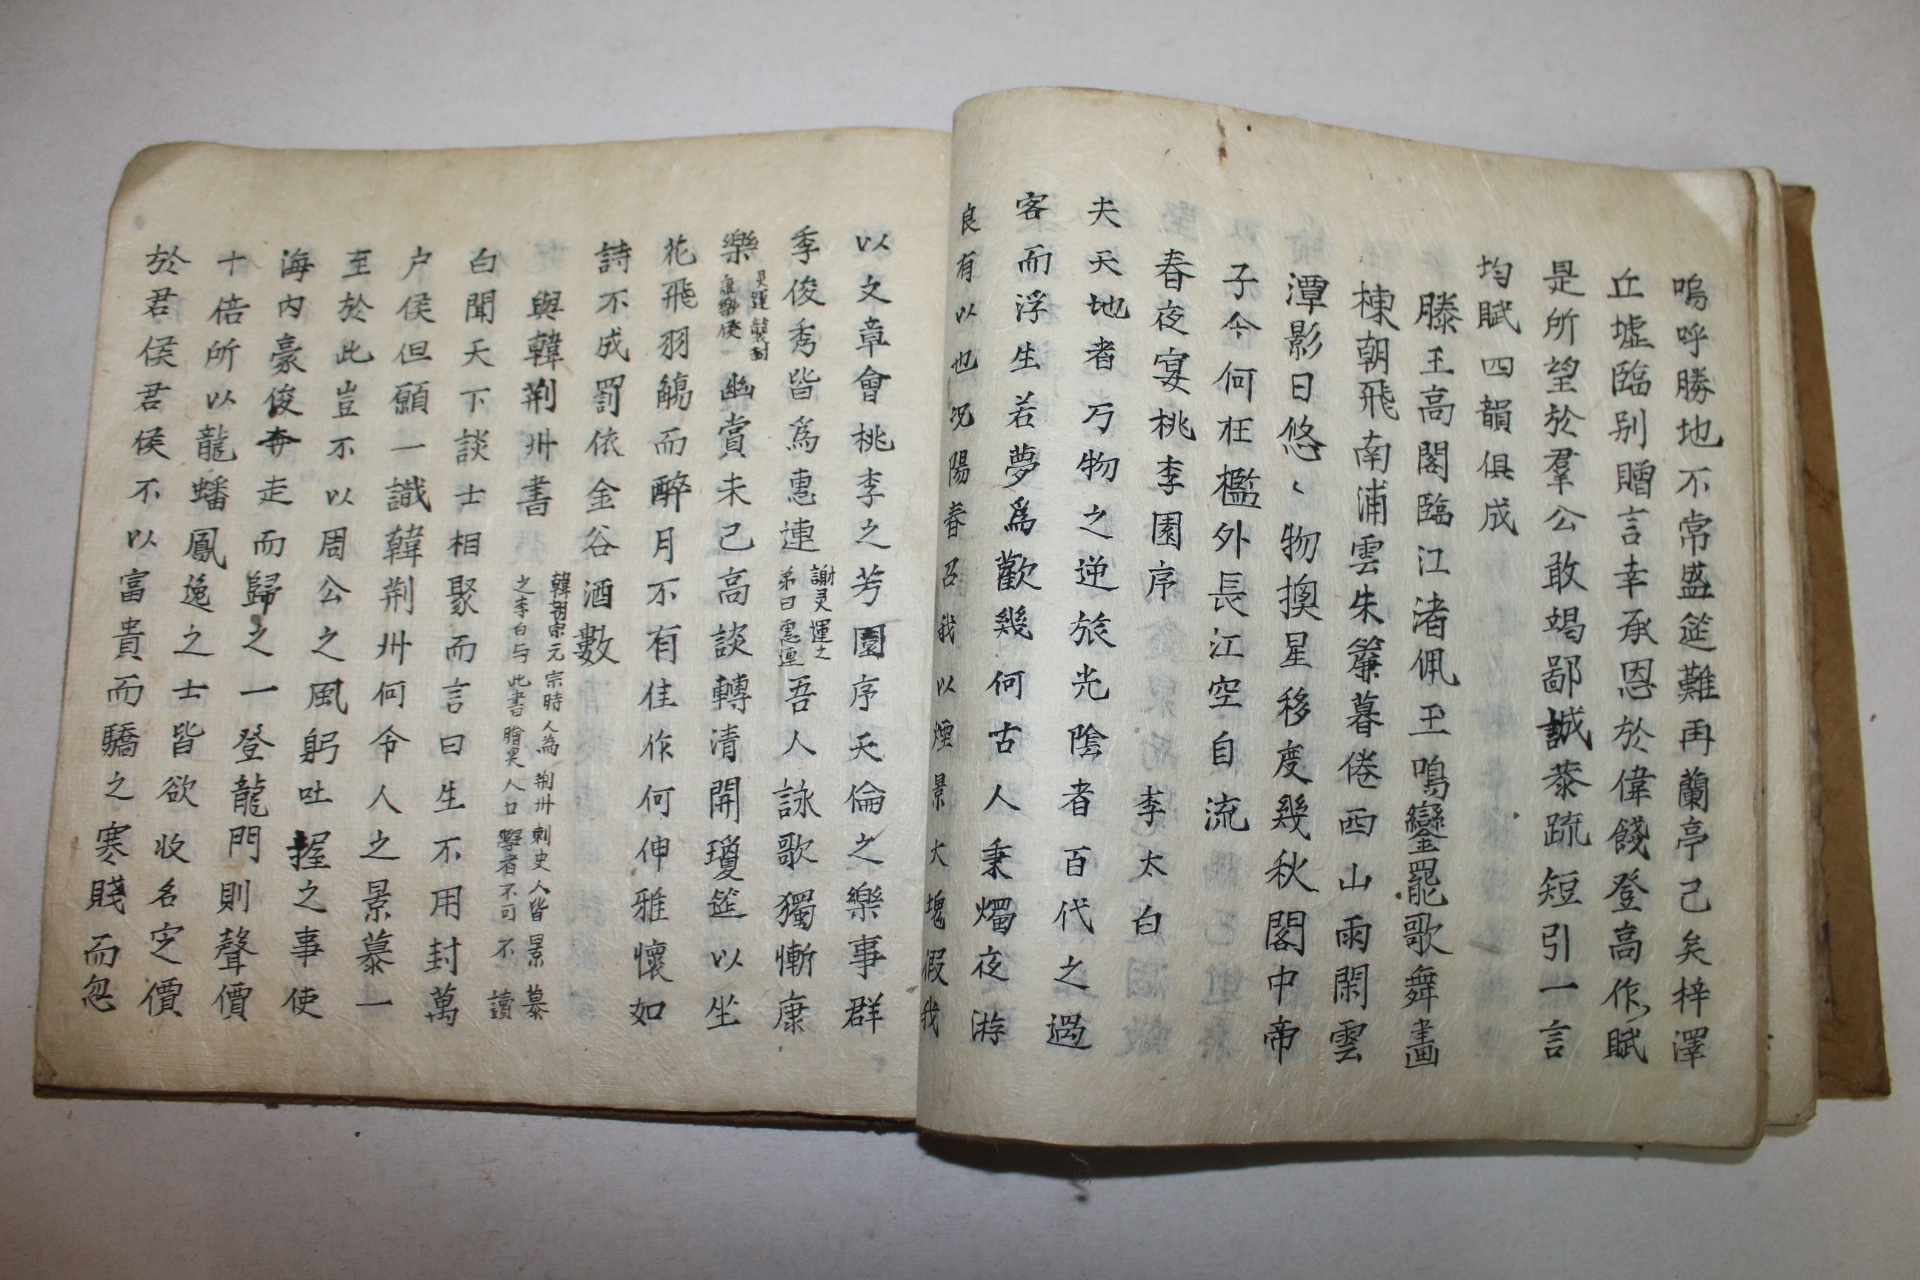 嗚呼勝地不常盛筵難再蘭亭已矣梓澤
丘墟臨別贈言幸承恩於偉餞登高作賦
是所望於羣公敢竭鄙誠恭疏短引一言
均賦四韻俱成
滕王高閣臨江渚佩玉鳴鑾罷歌舞畵
棟朝飛南浦雲朱簾暮倦西山雨閑雲
潭影日悠〻物換星移度幾秋閣中帝
子今何在檻外長江空自流
春夜宴桃李園序 李太白
夫天地者乃物之逆旅光陰者百代之過
客而浮生若夢爲歡幾何古人秉燭夜游
良有以也况陽春召我以煙景大塊假我
以文章會桃李之芳園序天倫之樂事群
季俊秀皆爲惠連謝灵運之弟曰惠連吾人詠歌獨慚康
樂灵運襲封康樂侯幽賞未已高談轉清開瓊筵以坐
花飛羽觴而醉月不有佳作何伸雅懷如
詩不成罰依金谷酒數
與韓荆州書韓朝宗元宗時人為荆州刺史人皆景慕之李白与此書膾炙人口學者不可不讀
白聞天下談士相聚而言曰生不用封萬
户侯但願一識韓荆州何令人之景慕一
至於此豈不以周公之風躬吐握之事使
海內豪俊奔走而歸之一登龍門則聲價
十倍所以龍蟠鳳逸之士皆欲收名定價
於君侯君侯不以富貴而驕之寒賤而忽